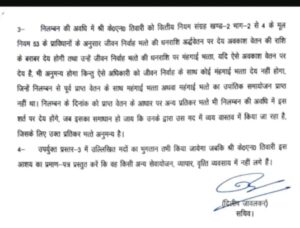 3- निलम्बन की अवधि में श्री के०एन० तिवारी को वित्तीय नियम संग्रह खण्ड-2 भाग-2 से 4 के मूल
नियम 53 के प्राविधानों के अनुसार जीवन निर्वाह भत्ते की धनराशि अर्द्धवेतन पर देय अवकाश वेतन की राशि
के बराबर देय होगी तथा उन्हें जीवन निर्वाह भत्ते की धनराशि पर मंहगाई भत्ता, यदि ऐसे अवकाश वेतन पर
देय है, भी अनुमन्य होगा किन्तु ऐसे अधिकारी को जीवन निर्वाह के साथ कोई मंहगाई भत्ता देय नहीं होगा,
जिन्हें निलम्बन से पूर्व प्राप्त वेतन के साथ मंहगाई भत्ता अथवा मंहगाई भत्ते का उपांतिक समायोजन प्राप्त
नहीं था। निलम्बन के दिनांक को प्राप्त वेतन के आधार पर अन्य प्रतिकर भत्ते भी निलम्बन की अवधि में इस
शर्त पर देय होंगे, जब इसका समाधान हो जाय कि उनके द्वारा उस मद में व्यय वास्तव में किया जा रहा है,
जिसके लिए उक्त प्रतिकर भत्ते अनुमन्य है।
4- उपर्युक्त प्रस्तर-3 में उल्लिखित मदों का भुगतान तभी किया जायेगा जबकि श्री के०एन० तिवारी इस
आशय का प्रमाण-पत्र प्रस्तुत करें कि वह किसी अन्य सेवायोजन, व्यापार, वृत्ति व्यवसाय में नहीं लगे हैं।
(दिलीप जावलकर)
सचिव।